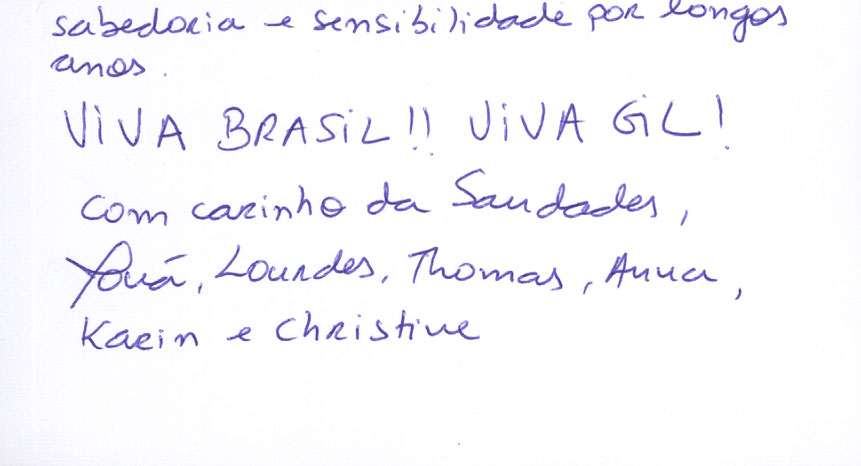 sabedoria e sensibilidade por longos
anos.
ViVA BRASiL!! ViVA GiL!
Com carinho da Saudades,
Lourdes, Thomas, Anna,
Karin e Christine